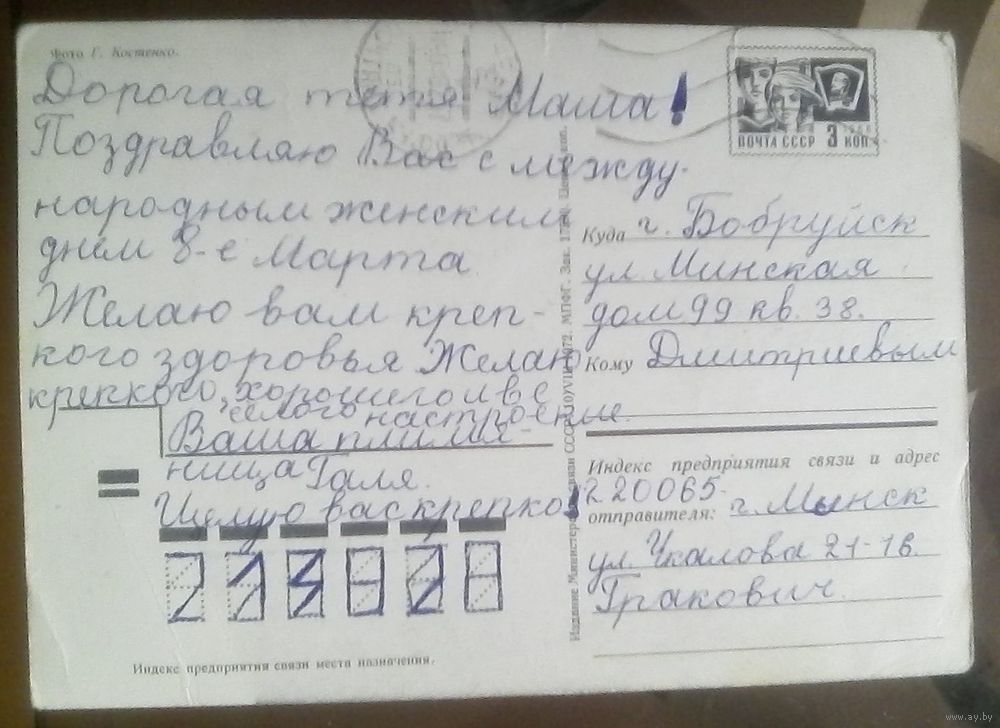 Фото Г. Костенко.
Дорогая тетя Маша!
Поздравляю Вас с между-
народным женским
днём 8-е Марта
Желаю вам креп-
кого здоровья Желаю
крепкого, хорошего и ве
селого настроение.
Ваша племя-
ница Галя.
Целую вас крепко!
Индекс предприятия связи места назначения.
Издание Министерства связи СССР.
ПОЧТА СССР 3 КОП
Куда г. Бобруйск
ул. Минская
дом 99 кв. 38.
Кому Дмитриевым
Индекс предприятия связи и адрес
отправителя: 220065 г. Минск
ул. Чкалова 21-1в.
Гракович
www.ay.by